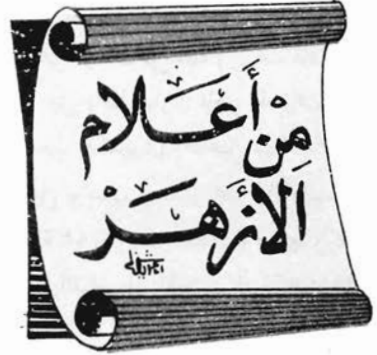 مِنْ أَعْلَام
الأَزهَر